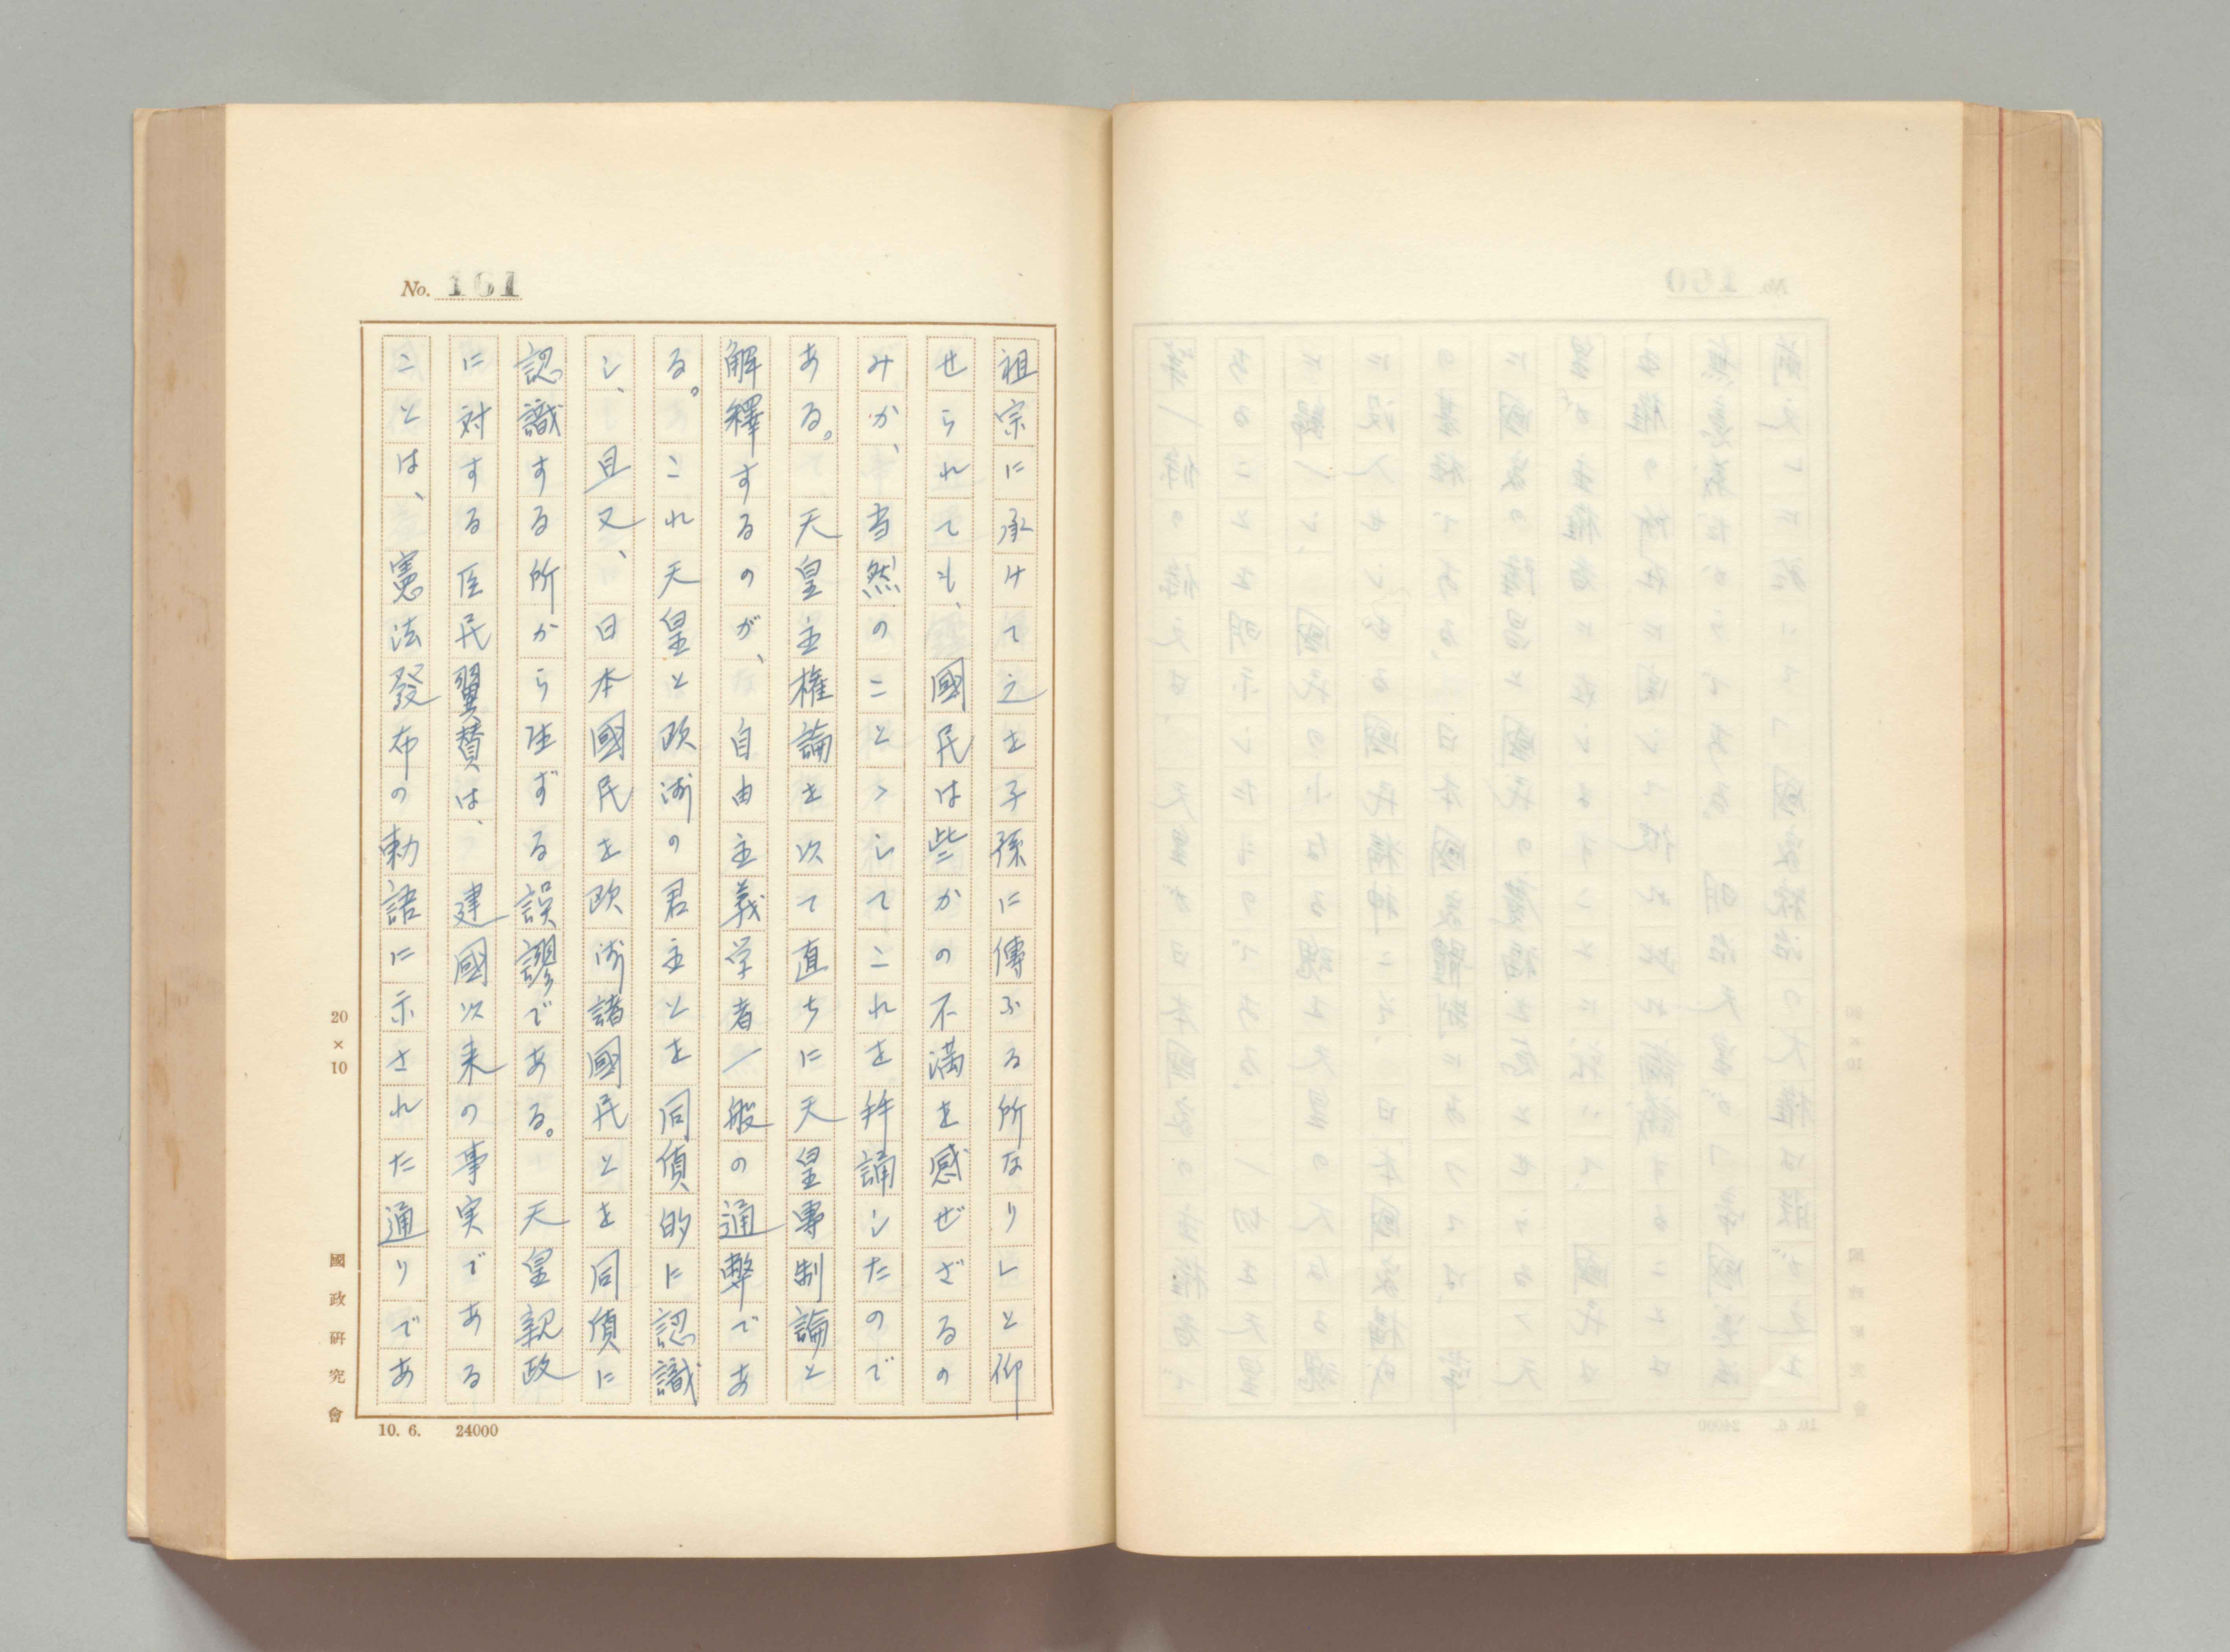 No. 161
祖宗に承けて之を子孫に傳ふる所なり」と仰
せられても、國民は些かの不満を感ぜざるの
みか、当然のことゝしてこれを拝誦したので
ある。天皇主権論を以て直ちに天皇專制論と
解釋するのが、自由主義学者一般の通弊であ
る。これ天皇と欧洲の君主とを同價的に認識
し、且又、日本國民を欧洲諸國民とを同價に
認識する所から生ずる誤謬である。天皇親政
に対する臣民翼賛は、建國以来の事実である
ことは、憲法發布の勅語に示された通りであ
20×10
國政研究會
10. 6. 24000